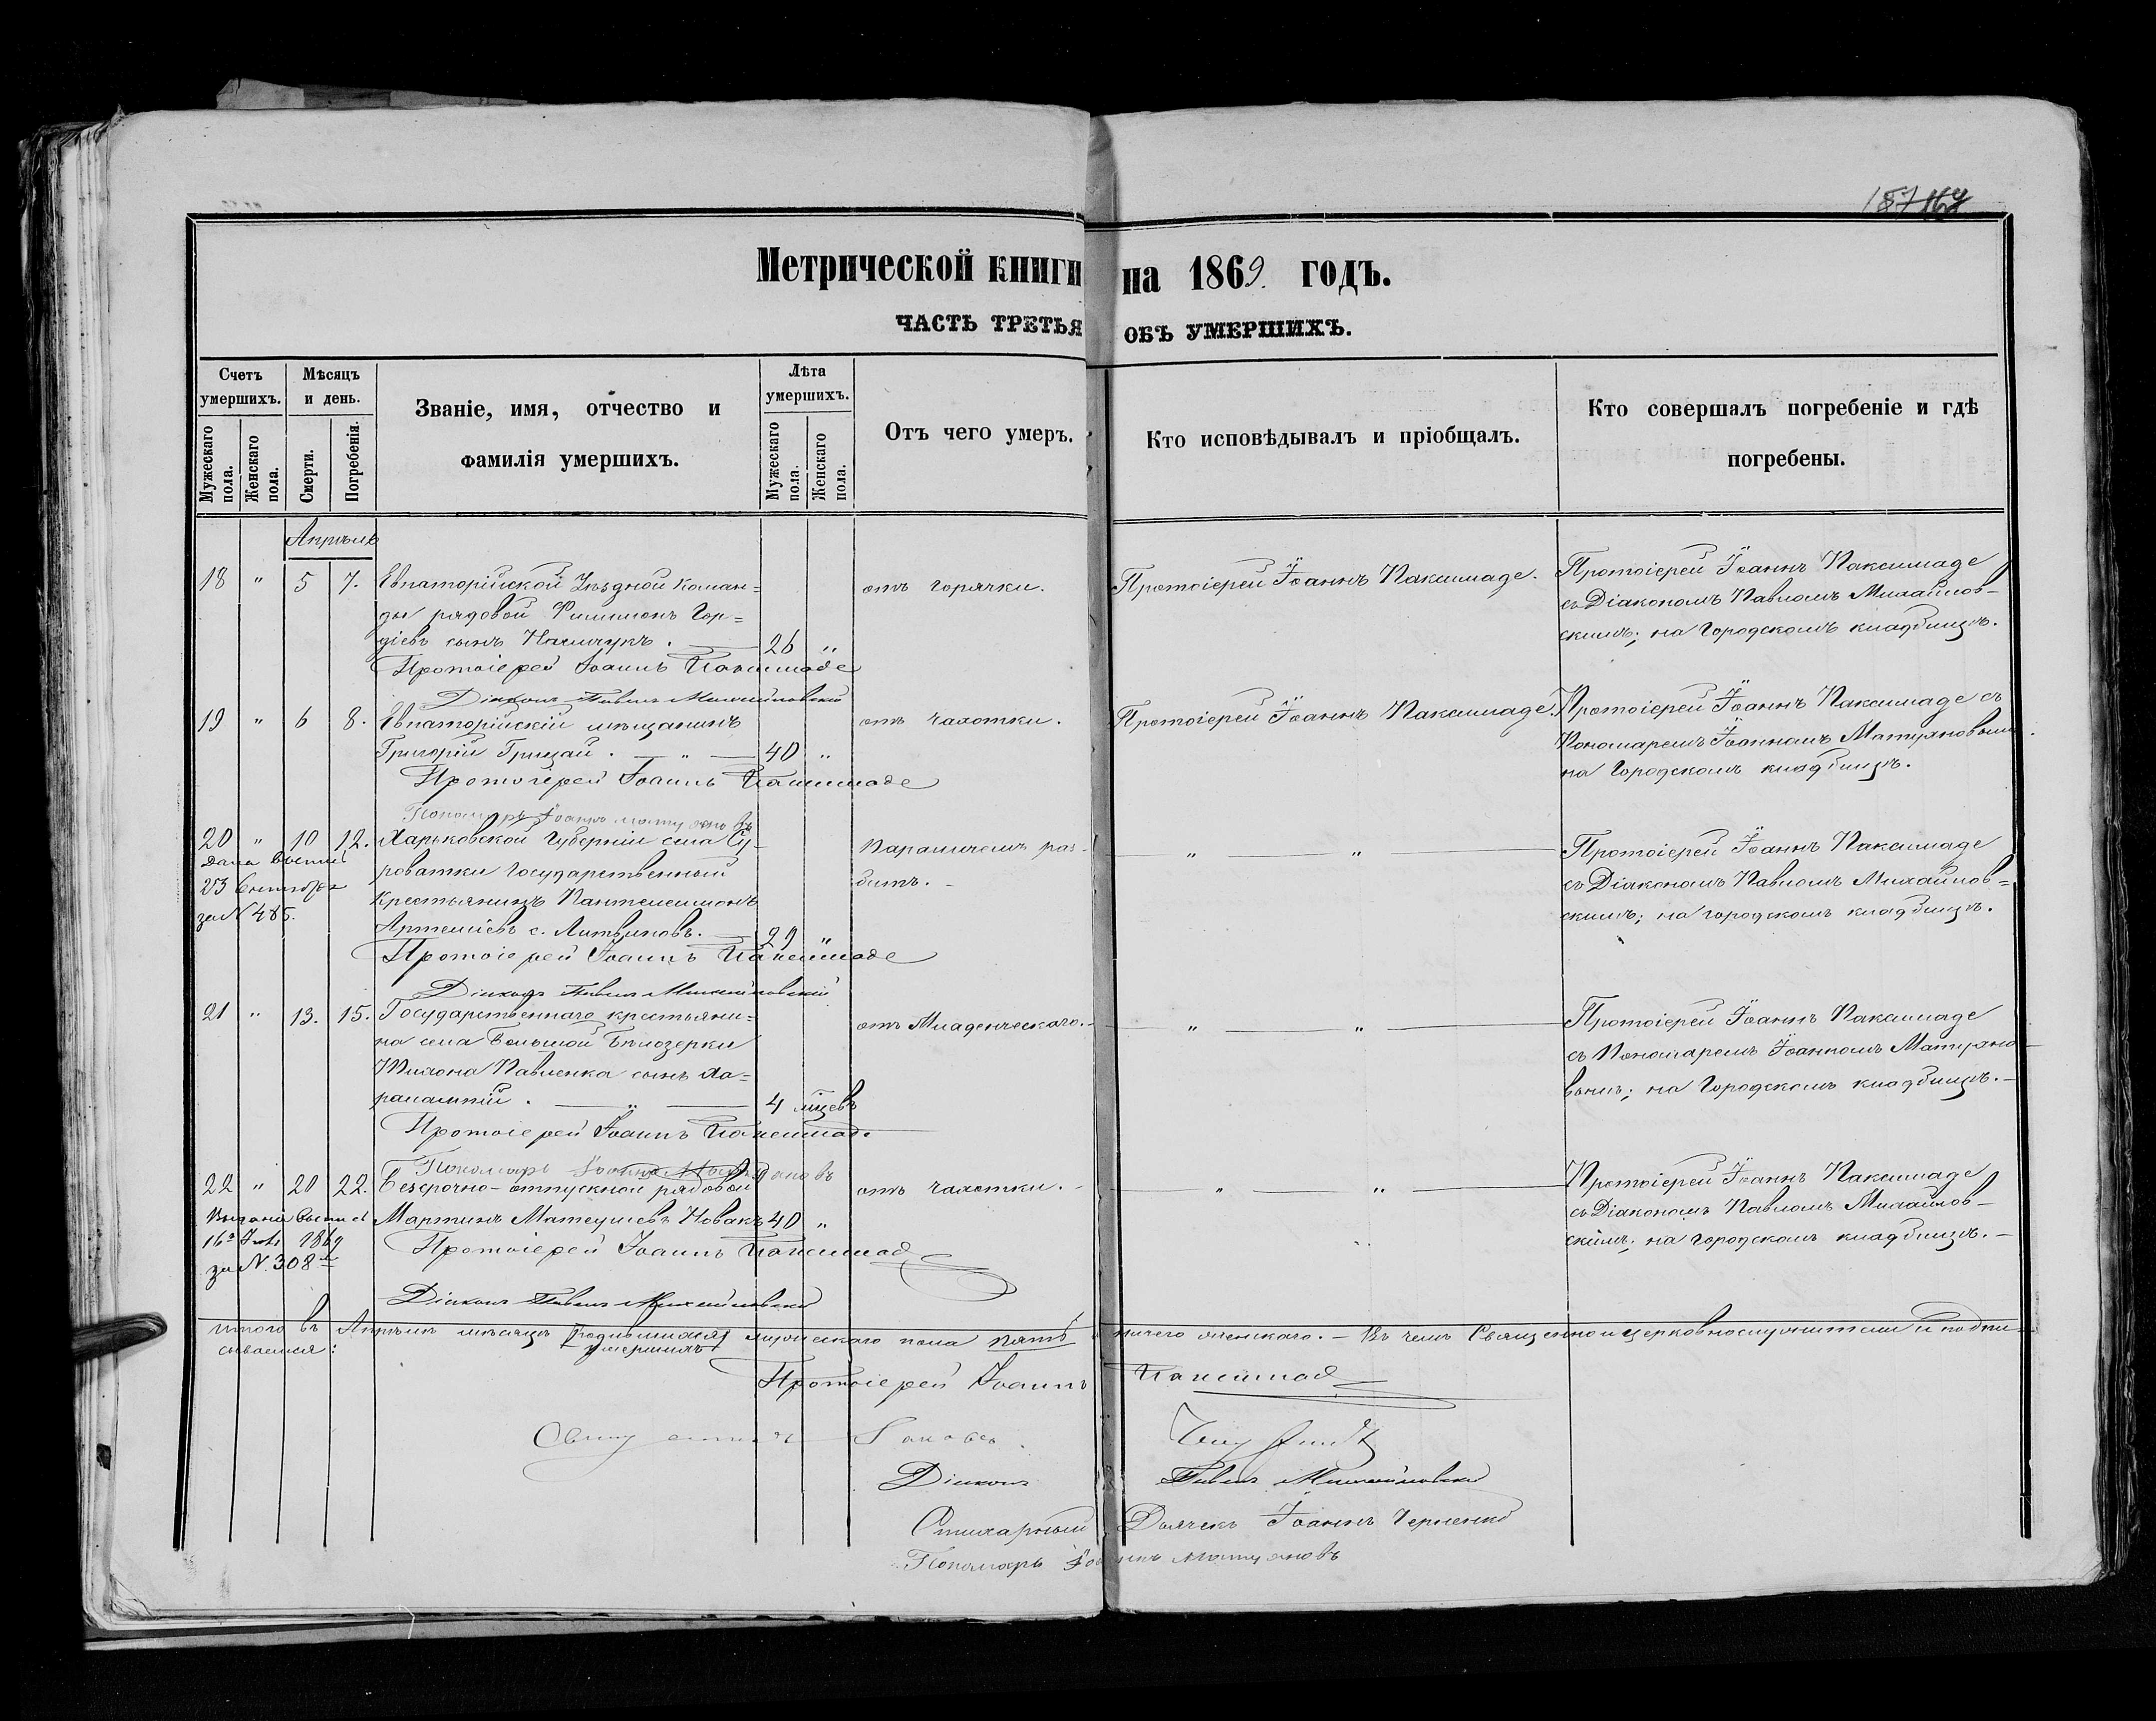 187 167
Метрической книги на 1869. годъ.
ЧАСТЬ ТРЕТЬЯ ОБЪ УМЕРШИХЪ.
Счетъ умершихъ.
Мѣсяцъ и день.
Званіе, имя, отчество и фамилія умершихъ.
Лѣта умершихъ.
Отъ чего умеръ.
Кто исповѣдывалъ и пріобщалъ.
Кто совершалъ погребеніе и гдѣ погребены.
Мужескаго пола.
Женскаго пола.
Смерти.
Погребенія.
Мужескаго пола.
Женскаго пола.
Апрѣль
18 " 5 7. Евпаторійской Уѣздной коман= отъ горячки. Протоіерей Іоаннъ Паксимаде. Протоіерей Іоаннъ Паксимаде
ды рядовой Филимонъ Гор= съ Діакономъ Павломъ Михайлов-
діевъ сынъ 26 " скимъ; на Городскомъ кладбищѣ.
Протоіерей Іоаннъ Паксимаде
Діаконъ Павелъ Михайловскій
19 " 6 8. Евпаторійскій мѣщанинъ отъ чахотки. Протоіерей Іоаннъ Паксимаде. Протоіерей Іоаннъ Паксимаде съ
Григорій Грицай. — " — 40 " Пономаремъ Іоанномъ Матуяновымъ.
на Городскомъ кладбищѣ.
Протоіерей Іоаннъ Паксимаде
Пономарь Іоаннъ Матуяновъ
20 " 10 12. Харьковской Губерніи села Су- Параличемъ раз- — " — " — Протоіерей Іоаннъ Паксимаде
роватки Государственный битъ. - съ Діакономъ Павломъ Михайлов=
23 за N 485. Крестьянинъ Пантелеимонъ скимъ; на городскомъ кладбищѣ.
Артеміевъ с. Литвиновъ. — 29 "
Протоіерей Іоаннъ Паксимаде
Діаконъ Павелъ Михайловскій
21 " 13. 15. Государственнаго крестьяни= отъ Младенческаго. — " — " — Протоіерей Іоаннъ Паксимаде
на села Большой Бѣлозерки съ Пономаремъ Іоанномъ Матуяно-
Павленка сынъ Ха= вымъ; на Городскомъ кладбищѣ. -
ралампій. — " — 4
Протоіерей Іоаннъ Паксимаде
Пономарь Іоаннъ Матуяновъ
22 " 20 22. Безсрочно-отпускной рядовой отъ чахотки. - — " — " — Протоіерей Іоаннъ Паксимаде
Мартинъ Матеушевъ Новакъ 40 " съ Діакономъ Павломъ Михайлов-
1869 за N. 308 скимъ; на городскомъ кладбищѣ. -
Протоіерей Іоаннъ Паксимад
Діаконъ Павелъ Михайловскій
Итого въ Апрѣлѣ мѣсяцѣ родившихся умершихъ мужескаго пола пять ничего женскаго. - Въ чемъ Священно и церковнослужители и подпи-
сываемся:
Протоіерей Іоаннъ Паксимад
Священникъ Іаковъ
Діаконъ Павелъ Михайловскій
Стихарный Дьячекъ Іоаннъ Черненко
Пономарь Іоаннъ Матуяновъ